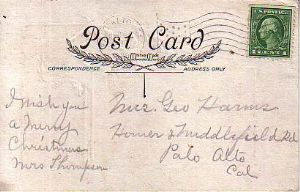 Post Card
CORRESPONDENCE
ADDRESS ONLY
I wish you
a Merry
Christmas
Mrs Thompson
Mrs. Geo Harms
Homer & Middlefield Rd
Palo Alto
Cal